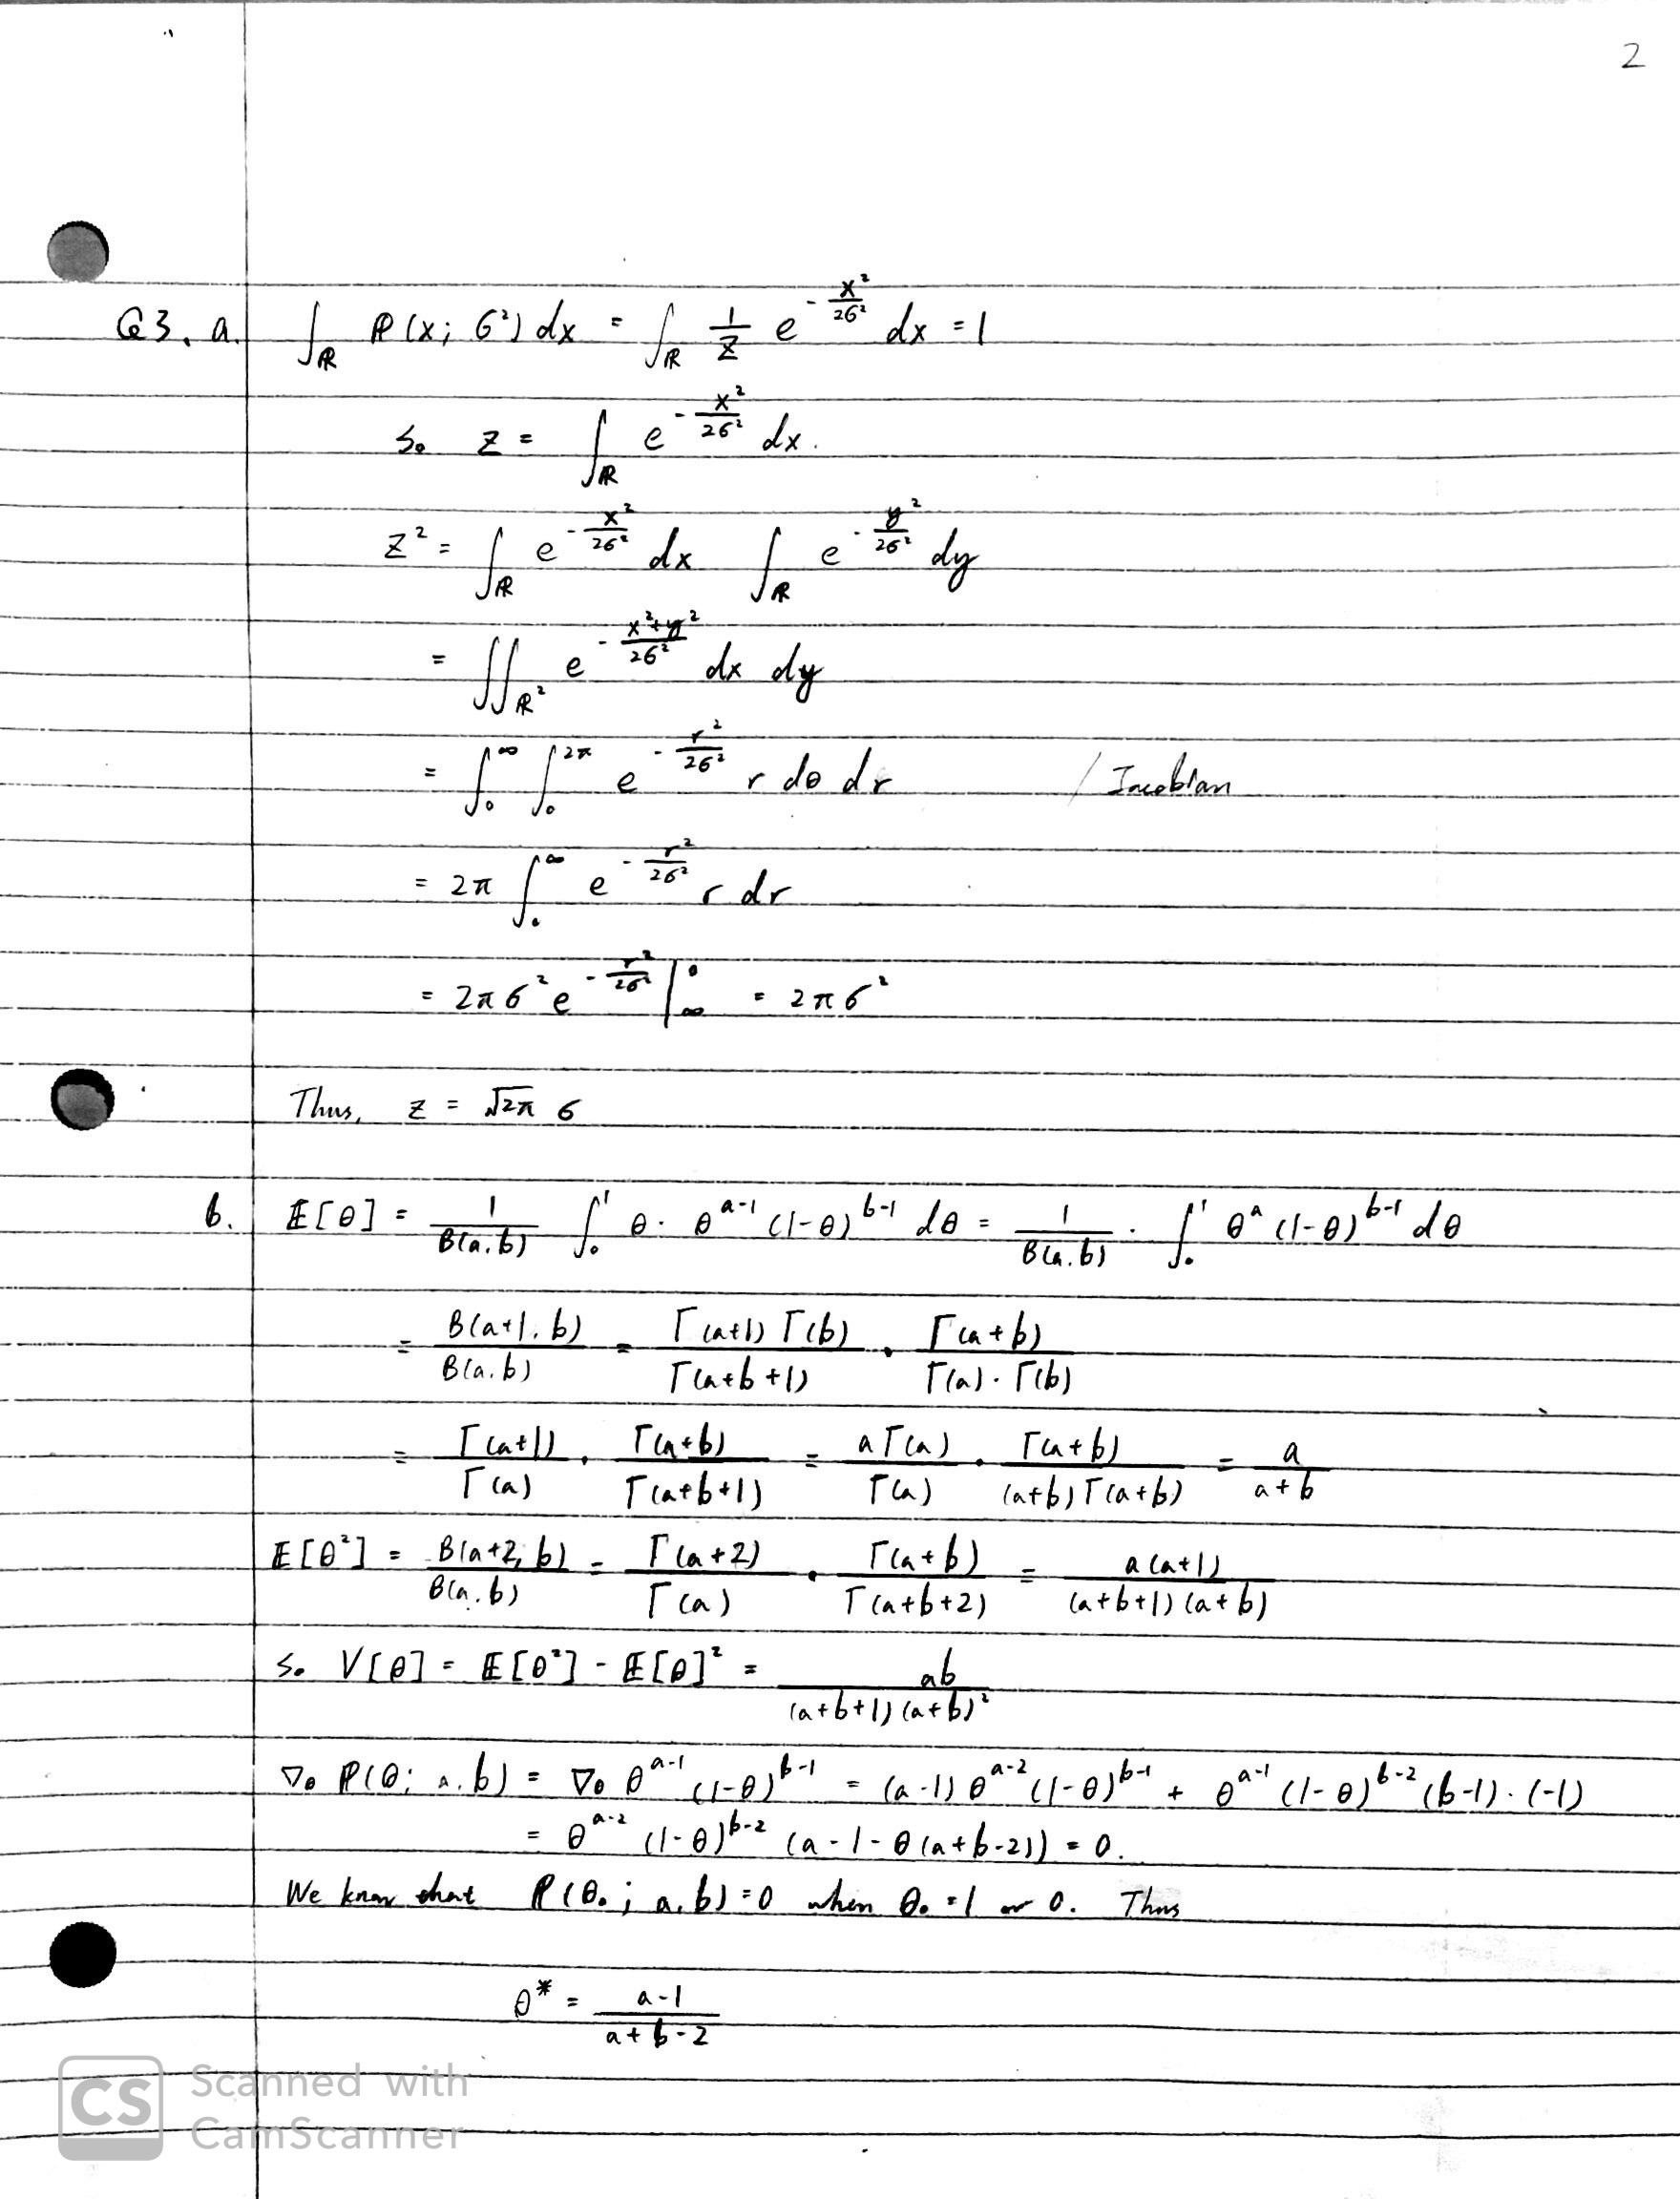 2
Q3. a. ∫_ℝ ℙ(x; σ²) dx = ∫_ℝ 1/Z e^(-x²/2σ²) dx = 1
So Z = ∫_ℝ e^(-x²/2σ²) dx.
Z² = ∫_ℝ e^(-x²/2σ²) dx ∫_ℝ e^(-y²/2σ²) dy
= ∬_ℝ² e^(-(x²+y²)/2σ²) dx dy
= ∫_0^∞ ∫_0^2π e^(-r²/2σ²) r dθ dr / Jacobian
= 2π ∫_0^∞ e^(-r²/2σ²) r dr
= 2πσ² e^(-r²/2σ²) |_∞^0 = 2πσ²
Thus, Z = √2π σ
b. 𝔼[θ] = 1/B(a,b) ∫_0^1 θ · θ^(a-1) (1-θ)^(b-1) dθ = 1/B(a,b) · ∫_0^1 θ^a (1-θ)^(b-1) dθ
= B(a+1, b)/B(a,b) = Γ(a+1) Γ(b)/Γ(a+b+1) · Γ(a+b)/Γ(a)·Γ(b)
= Γ(a+1)/Γ(a) · Γ(a+b)/Γ(a+b+1) = aΓ(a)/Γ(a) · Γ(a+b)/(a+b)Γ(a+b) = a/a+b
𝔼[θ²] = B(a+2, b)/B(a,b) = Γ(a+2)/Γ(a) · Γ(a+b)/Γ(a+b+2) = a(a+1)/(a+b+1)(a+b)
So V[θ] = 𝔼[θ²] - 𝔼[θ]² = ab/(a+b+1)(a+b)²
∇_θ ℙ(θ; a,b) = ∇_θ θ^(a-1) (1-θ)^(b-1) = (a-1) θ^(a-2) (1-θ)^(b-1) + θ^(a-1) (1-θ)^(b-2) (b-1)·(-1)
= θ^(a-2) (1-θ)^(b-2) (a-1-θ(a+b-2)) = 0.
We know that ℙ(θ₀; a,b) = 0 when θ₀ = 1 or 0. Thus
θ* = a-1/a+b-2
CS Scanned with
CamScanner